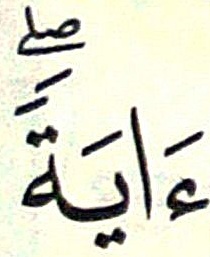 ءَايَةًۖ